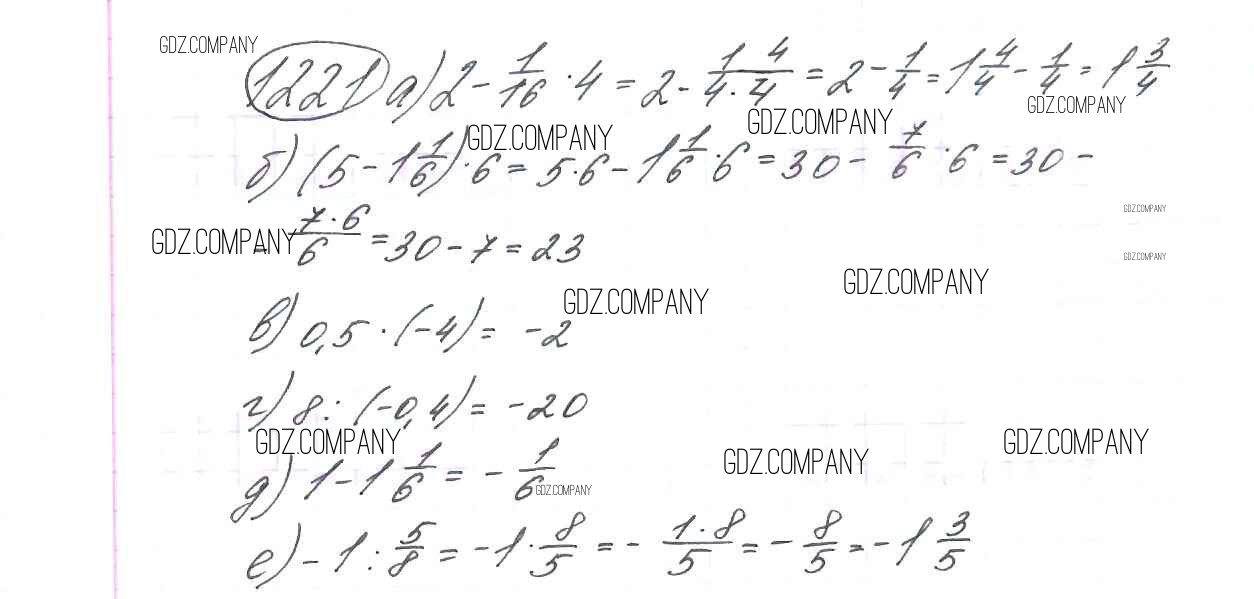 GDZ.COMPANY
1221 а) 2 - 1/16 · 4 = 2 - 1·4/4·4 = 2 - 1/4 = 1 4/4 - 1/4 = 1 3/4
GDZ.COMPANY
GDZ.COMPANY
GDZ.COMPANY
б) (5 - 1 1/6) · 6 = 5·6 - 1 1/6 · 6 = 30 - 7/6 · 6 = 30 -
GDZ.COMPANY
- 7·6/6 = 30 - 7 = 23
GDZ.COMPANY
GDZ.COMPANY
GDZ.COMPANY
GDZ.COMPANY
в) 0,5 · (-4) = -2
г) 8 : (-0,4) = -20
GDZ.COMPANY
GDZ.COMPANY
GDZ.COMPANY
д) 1 - 1 1/6 = - 1/6
GDZ.COMPANY
е) - 1 : 5/8 = -1 · 8/5 = - 1·8/5 = - 8/5 = -1 3/5